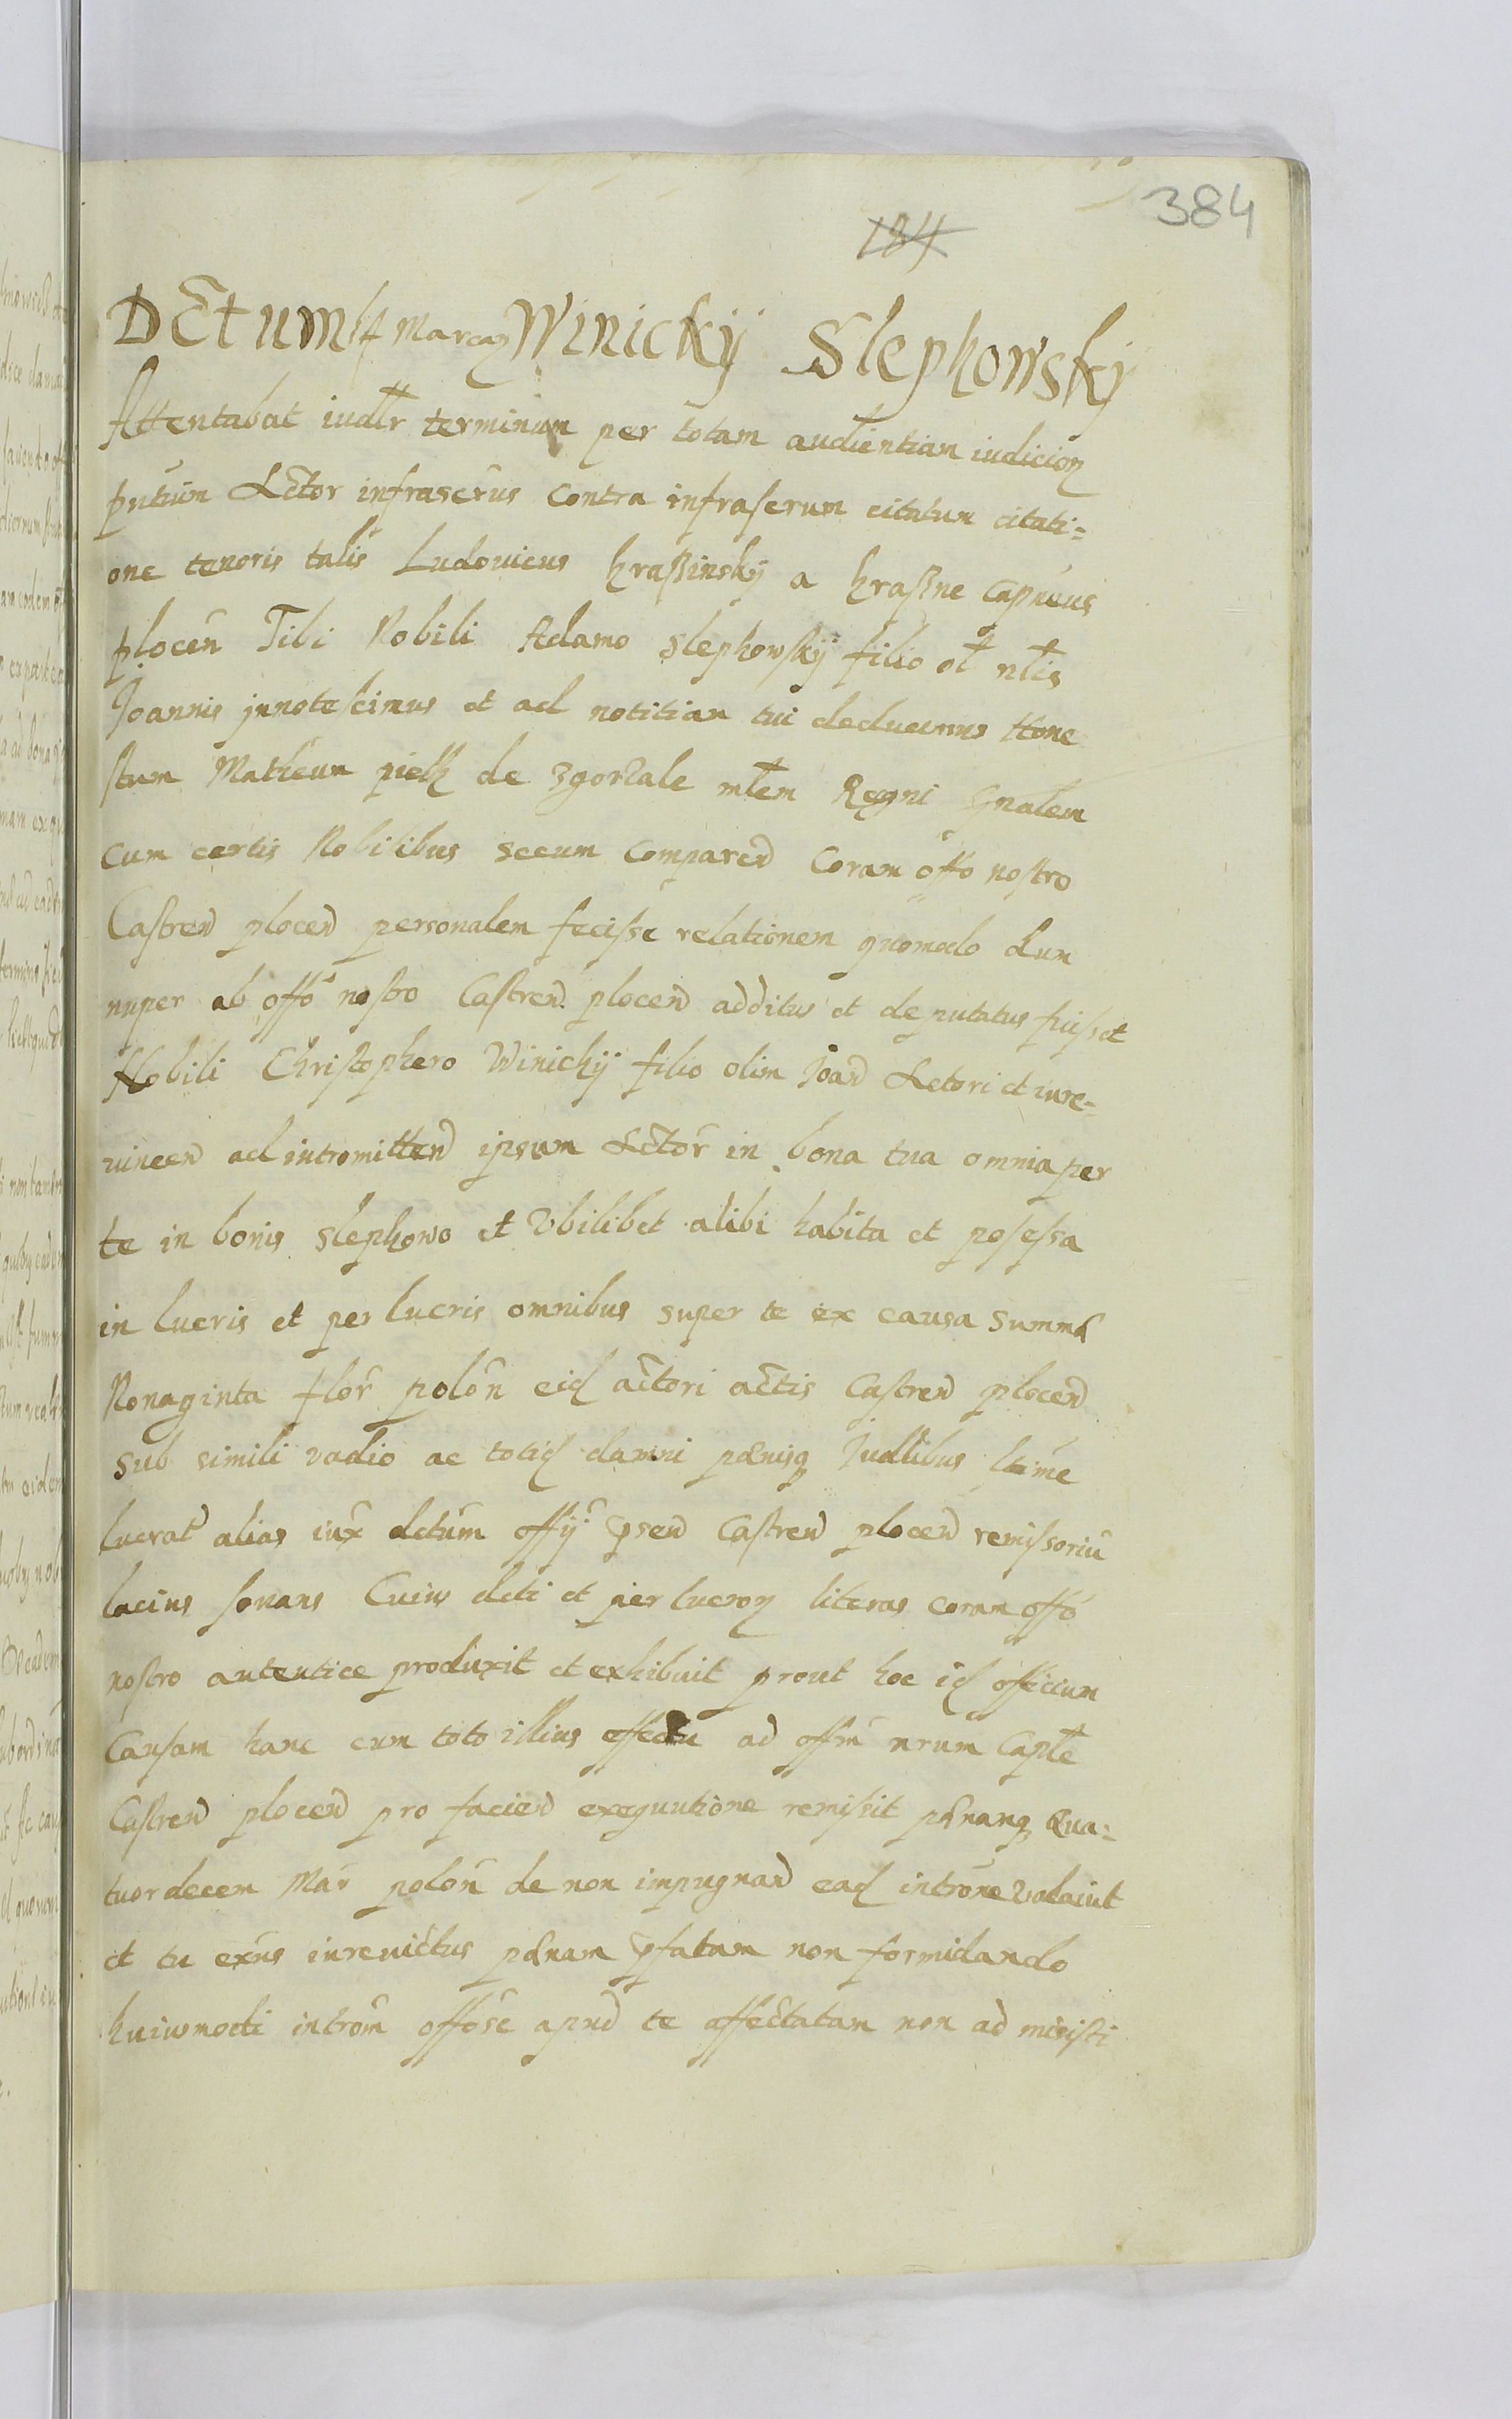 384
184
Dčtum 14 Marcaȝ Winickÿ Slephowskÿ
Attentabat iudłr terminum per totam audientiam iudicioꝝ
pntium Actor infrascrus contra infrascrum citatum citati=
one tenoris talis Ludouicus Kraßinskÿ a Kraßne Capneus
płocen Tibi Nobili Adamo Slephowskÿ filio ol nlis
Joannis jnnotescimus et ad notitiam tui deducimus Hone
stum Matheum de Zgorzale młem Regni Gnalem
cum certis Nobilibus secum comparen coram offo nostro
Castren plocen personalem fecisse relationem quomodo dum
nuper ab offo nostro Castren plocen additus et deputatus fuisset
Nobili Christophero Winickÿ filio olim Joan Actori et iure=
uincen ad intromitten ipsum Actor in bona tua omnia per
te in bonis Slephowo et Vbilibet alibi habita et posessa
in lucris et per lucris omnibus super te ex causa summæ
Nonaginta flor polon eiđ actori actis Castren plocen
sub simili vadio ac totiđ damni pænisq Iudlibus ltime
lucrat alias iux dctum offÿ psen Castren plocen remissoriu
lacius sonans Cuius dcti et per lucroꝝ literas coram offo
nostro autentice produxit et exhibuit prout hoc iđ officium
Causam hanc cum toto illius effectu ad offm nrum Caple
Castren plocen pro facien exequutione remisit pænamq Qua=
tuordecem Mar polon de non impugnan eađ introne valauit
et tu exns iureuictus pænam pfatam non formidando
huiusmodi introm offose apud te affectatam non ad misisti